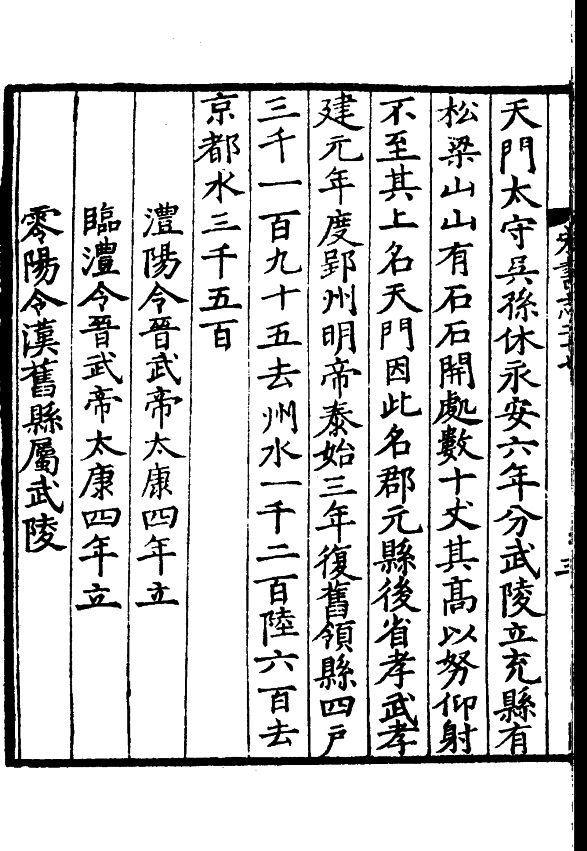 天門太守吴孫休永安六年分武陵立充縣有
松梁山山有石石開處數十丈其髙以努仰射
不至其上名天門因此名郡元縣後省孝武孝
建元年度郢州明帝泰始三年復舊領縣四户
三千一百九十五去州水一千二百陸六百去
京都水三千五百
澧陽令晉武帝太康四年立
臨澧令晉武帝太康四年立
零陽令漢舊縣屬武陵